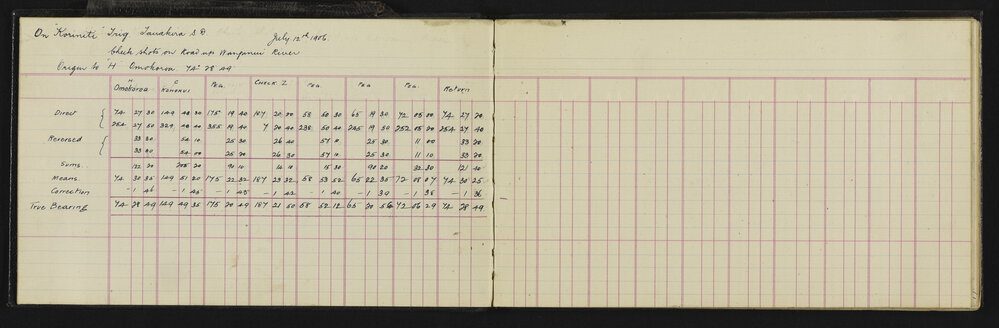 On "Koriniti" Trig Tauakira S.D. July 12th 1906
Check shots on Road up Wanganui River
Origin to "H" Omokoroa 74° 28 49
H C
Omokoroa Pea. Check 2 Pea Pea Pea. Return
Direct 74 27 30 149 48 20 175 19 40 187 20 20 58 50 30 65 19 30 72 05 00 74 27 20
254 27 50 329 355 19 40 7 20 40 238 50 40 245 19 30 252 05 20 254 27 40
Reversed 33 20 54 10 25 30 26 40 57 0 25 30 11 00 33 20
33 40 54 00 25 20 26 30 57 10 25 30 11 10 33 20
Sums 122 20 205 20 90 10 14 10 15 30 90 20 32 30 121 40
Means. 74 30 35 149 51 20 175 22 32 187 23 32 58 53 52 65 22 35 72 08 07 74 30 25
Correction -1 46 -1 45 -1 43 -1 42 -1 40 -1 39 -1 38 -1 36
True Bearing 74 28 49 149 49 35 175 20 49 187 21 50 58 52 12 65 20 56 72 06 29 74 28 49